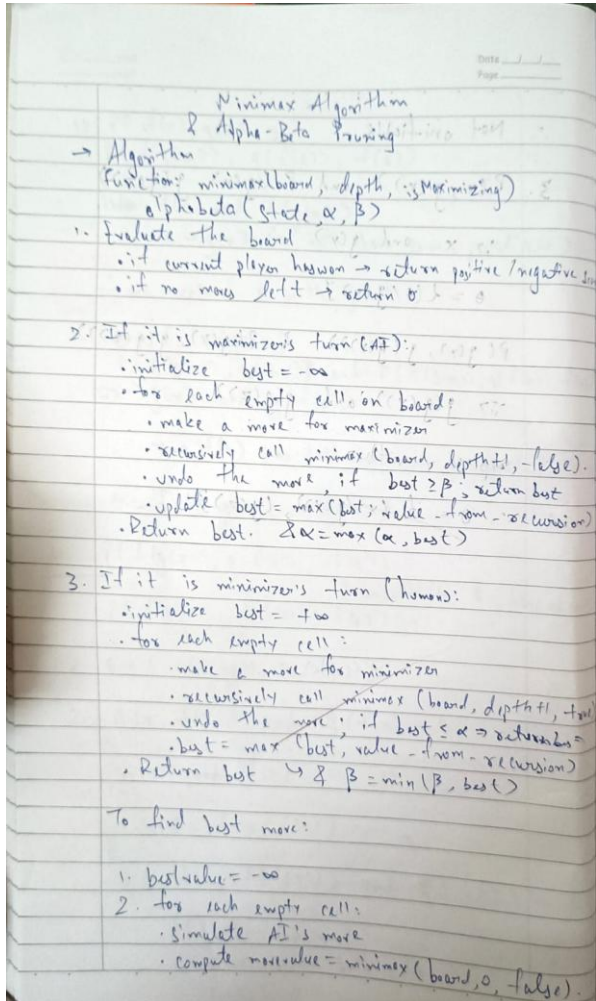 Date
Page
Minimax Algorithm
& Alpha-Beta Pruning
→ Algorithm
function: minimax(board, depth, isMaximizing)
alphabeta (state, α, β)
1. Evaluate the board
• if current player has won → return positive/negative
• if no moves left → return 0
2. If it is maximizer's turn (AI):
• initialize best = -∞
• for each empty cell on board
• make a move for maximizer
• recursively call minimax (board, depth+1, false).
• undo the move, if best ≥ β; return best
• update best = max (best, value-from-recursion)
• Return best. & α = max (α, best)
3. If it is minimizer's turn (human):
• initialize best = +∞
• for each empty cell:
• make a move for minimizer
• recursively call minimax (board, depth+1,
• undo the move; if best ≤ α ⇒
• best = max (best, value-from-recursion)
• Return best ↳ & β = min (β, best)
To find best move:
1. bestvalue = -∞
2. for each empty cell:
• simulate AI's move
• compute movevalue = minimax (board, 0, false).